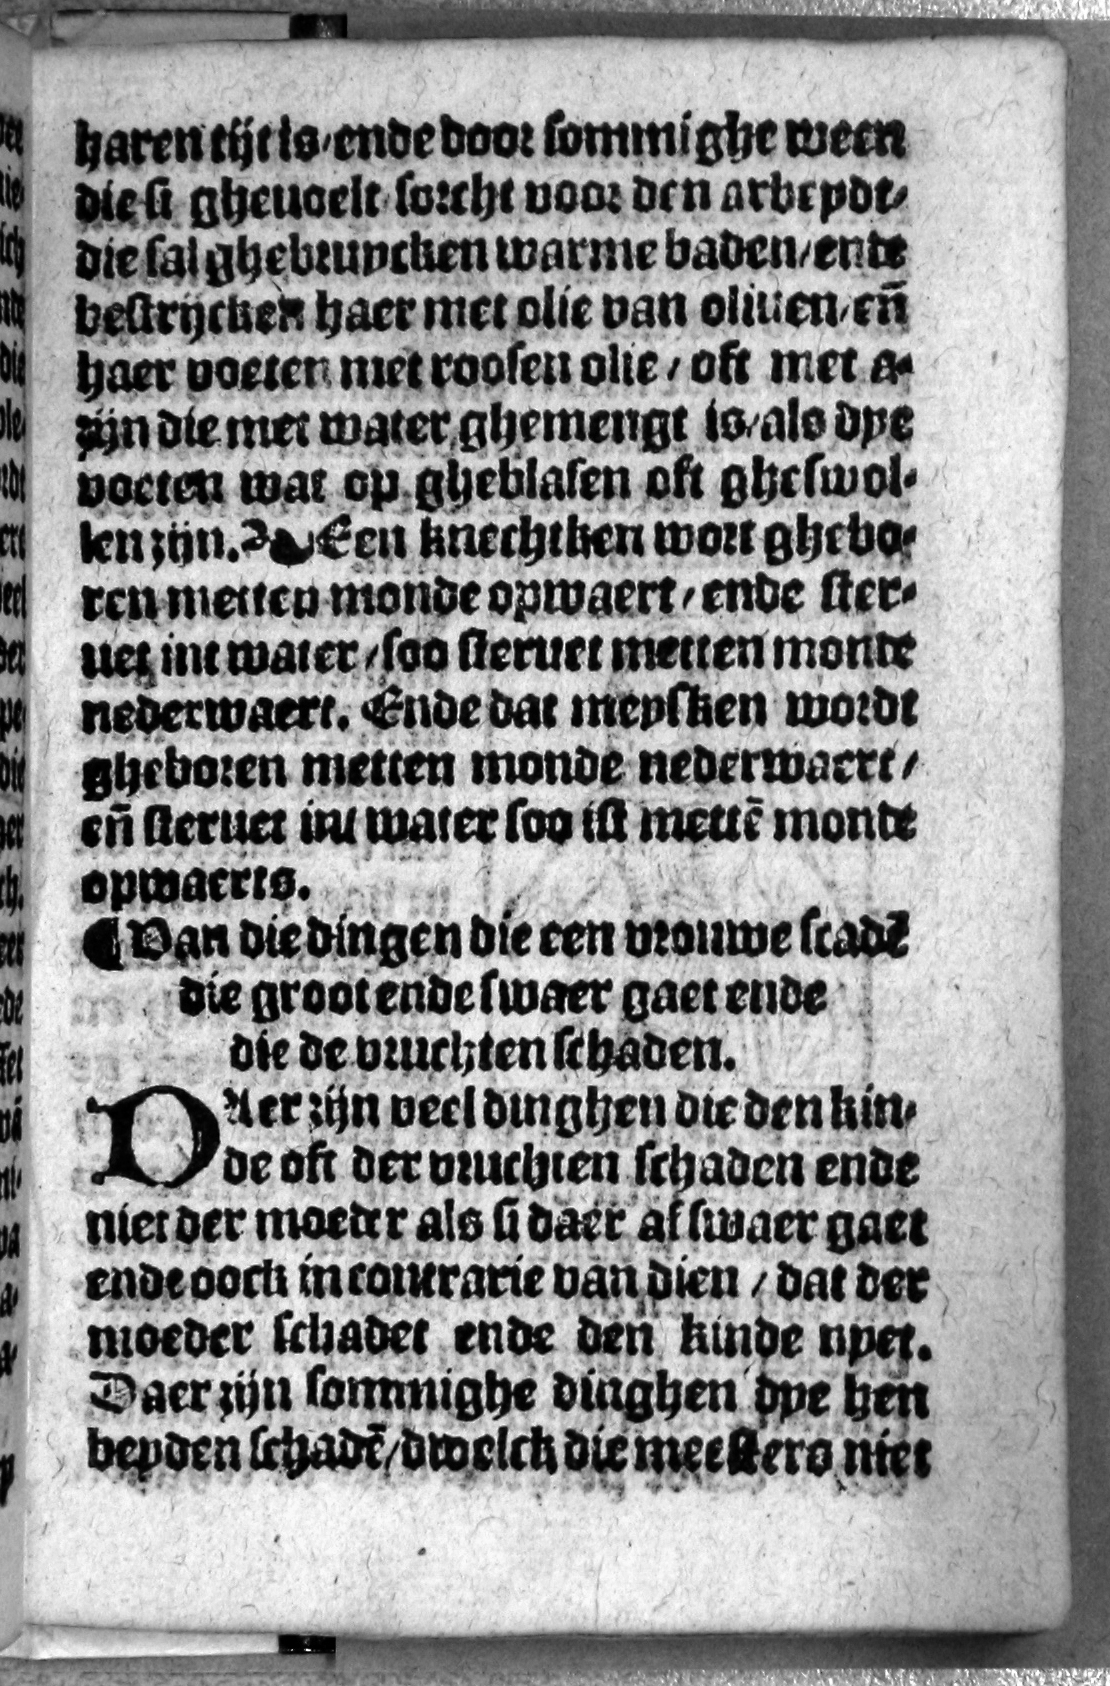 haren tijt is/ende door sommighe ween
die si gheuoelt sorcht voor den arbeydt/
die sal ghebruycken warme baden/ende
bestrijcken haer met olie van oliuen/en̄
haer voeten met roosen olie/ oft met a-
zijn die met water ghemengt is/als dye
voeten wat op gheblasen oft gheswol-
len zijn. Een knechtken wort ghebo-
ren metten monde opwaert/ende ster-
uet int water/soo steruet metten monde
nederwaert. Ende dat meysken wordt
gheboren metten monde nederwaert/
en̄ steruet int water soo ist mettē monde
opwaerts.
¶ Van die dingen die een vrouwe scadē
die groot ende swaer gaet ende
die de vruchten schaden.
DAer zijn veel dinghen die den kin-
de oft der vruchten schaden ende
niet der moeder als si daer af swaer gaet
ende oock in contrarie van dien/ dat der
moeder schadet ende den kinde nyet.
Daer zijn sommighe dinghen dye hen
beyden schadē/dwelck die meesters niet